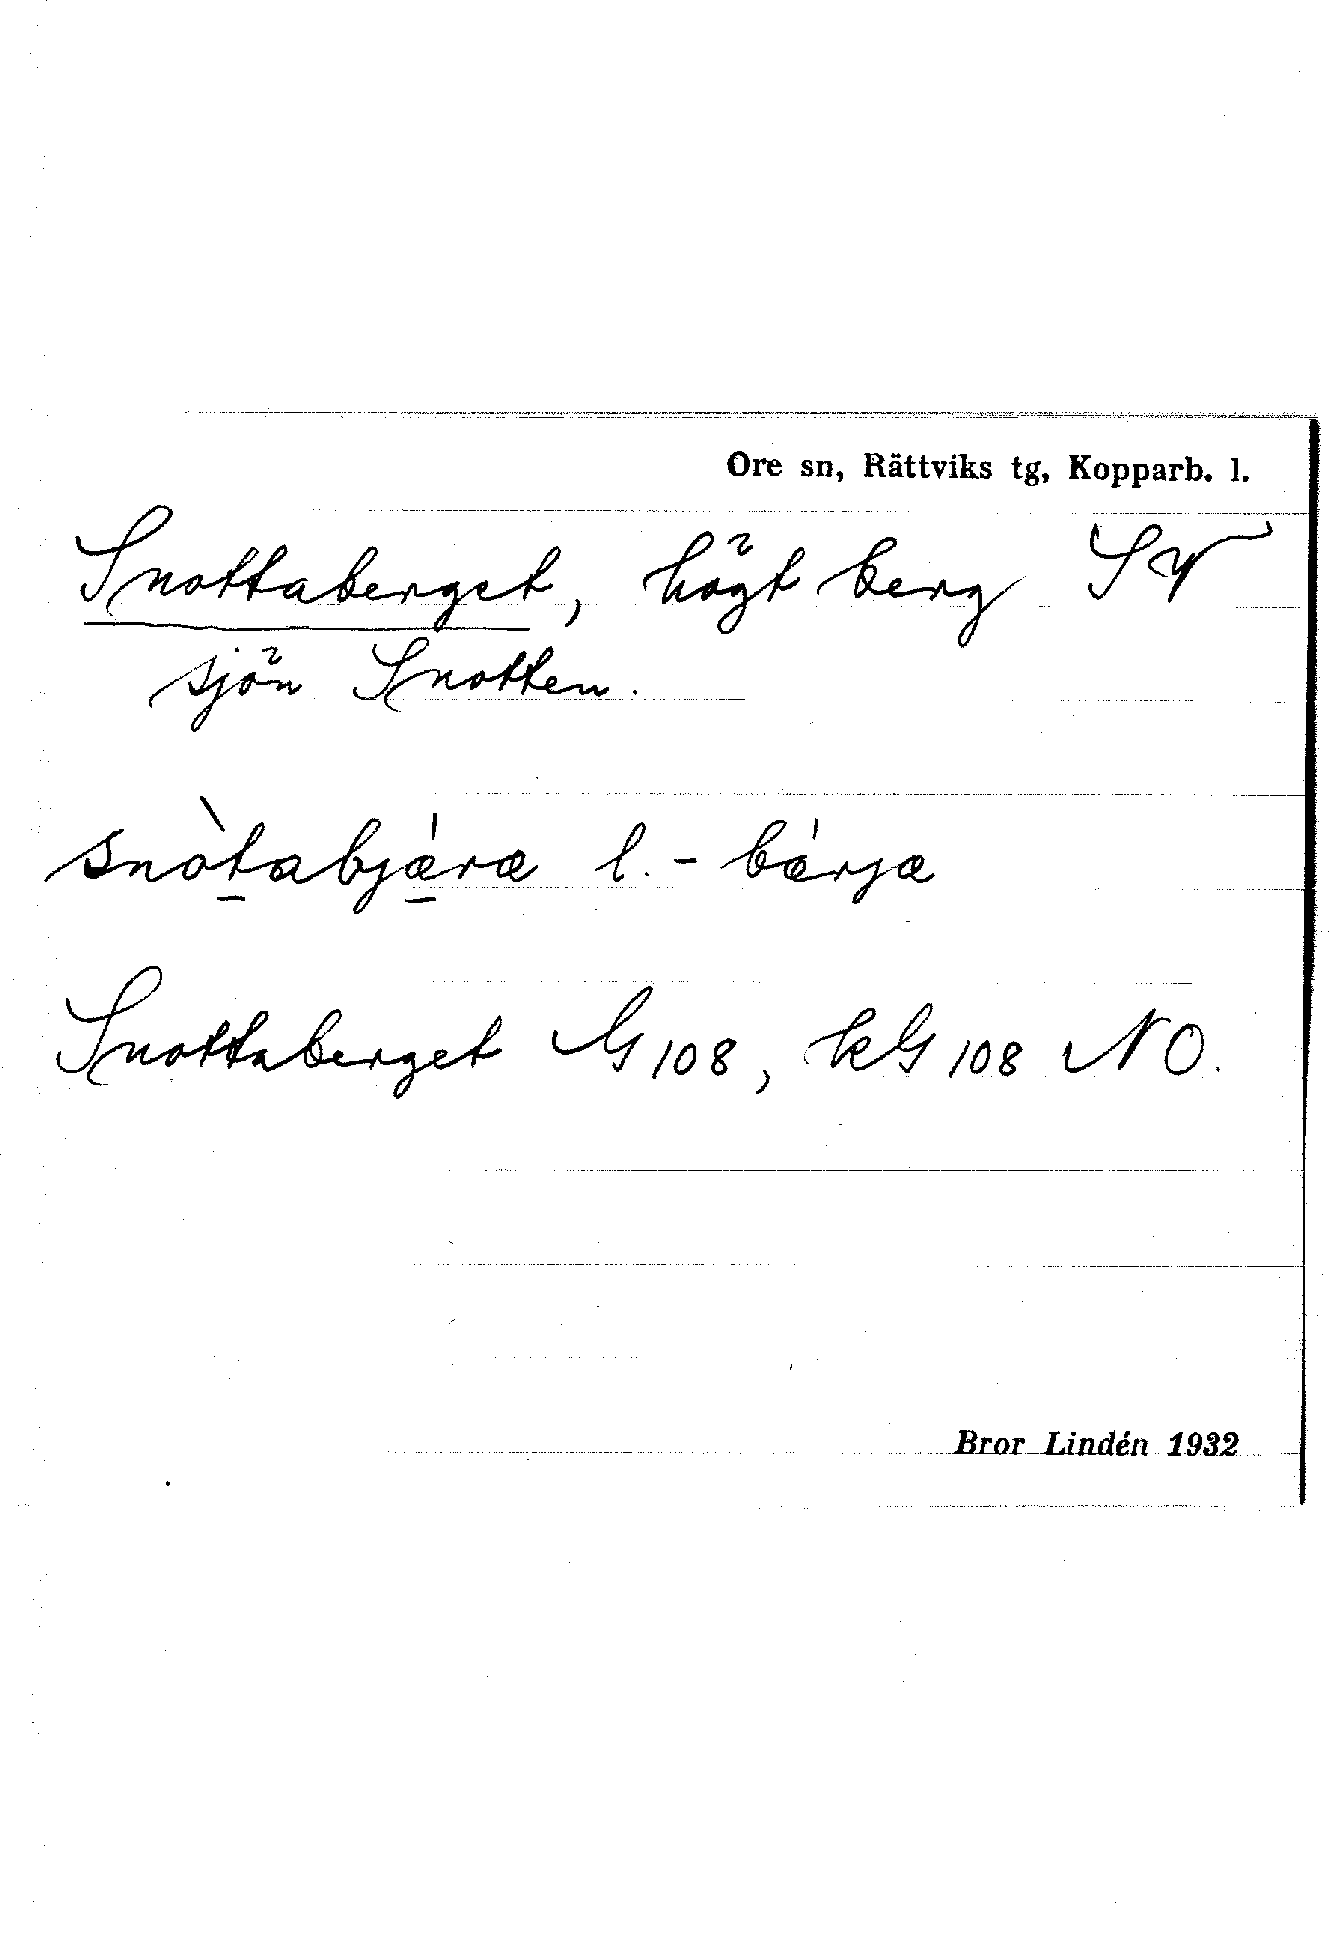 Ore sn, Rättviks tg, Kopparb. l.
Snottaberget, högt berg SV
sjön Snotten.
snòt̠abjǽ̠ræ l. - bǽrjæ
Snottaberget G 108, kG 108 NO.
Bror Lindén 1932